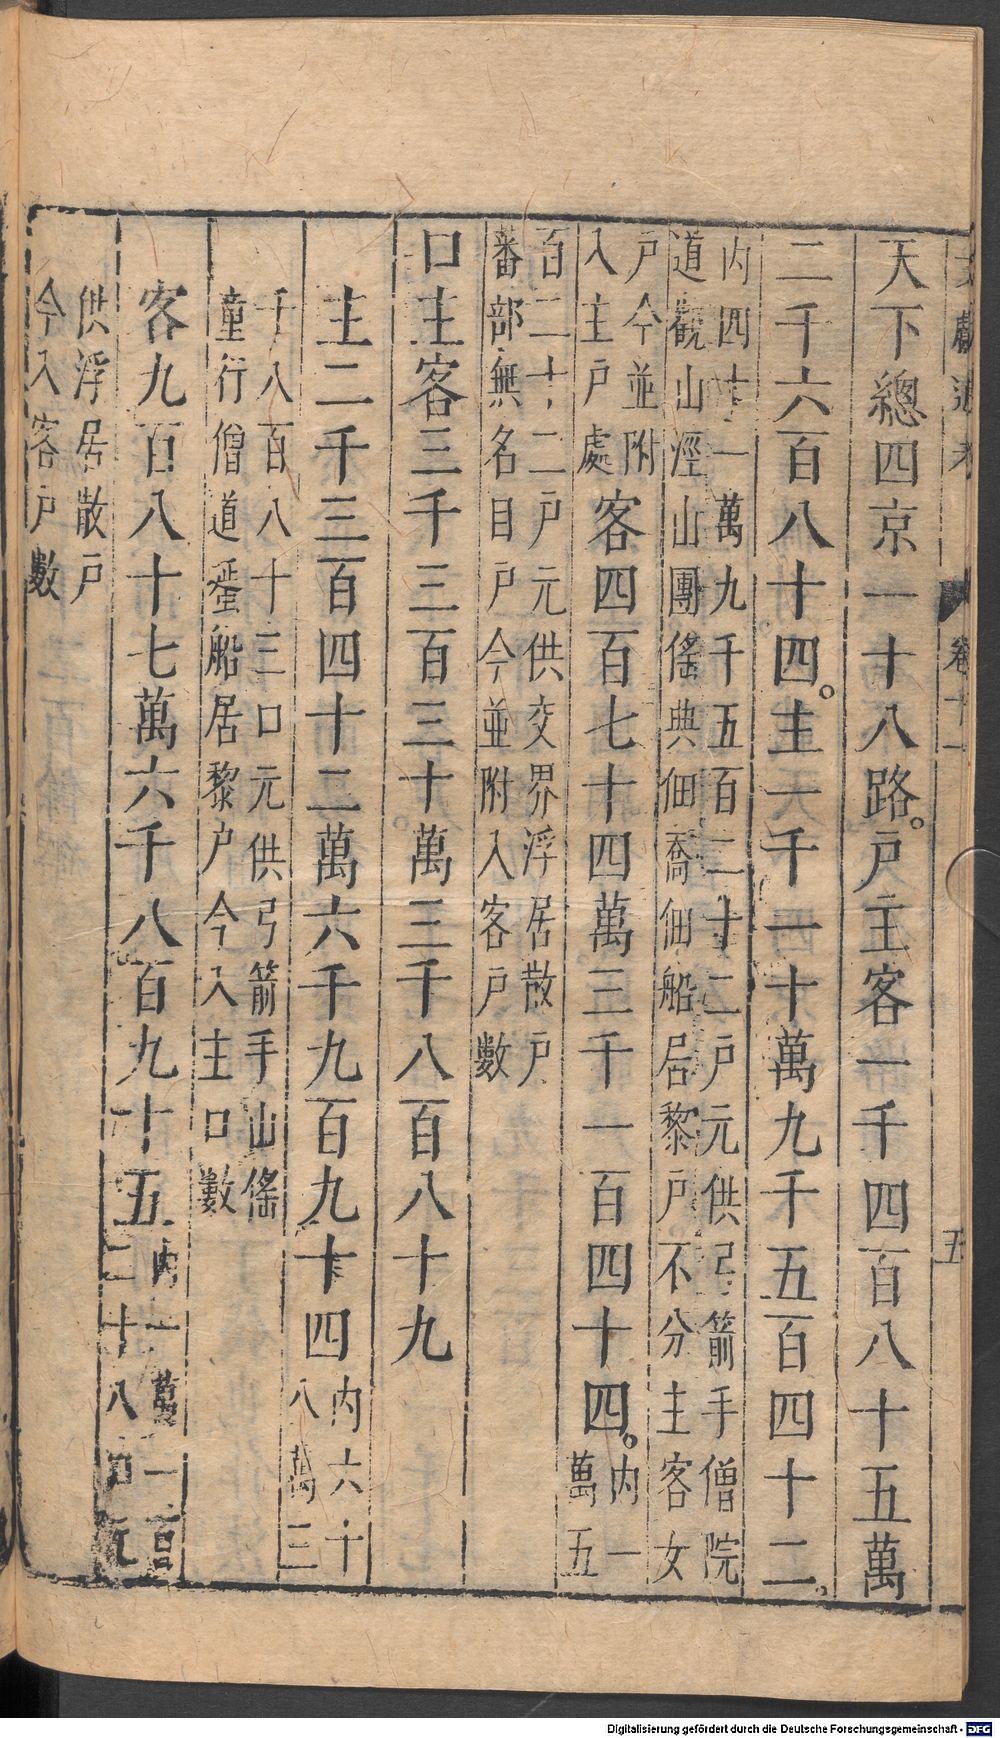 文獻通考 卷十一 五
天下總四京一十八路。戶主客一千四百八十五萬
二千六百八十四。主一千一十萬九千五百四十二。
內四十一萬九千五百二十二戶元供弓箭手僧院
道觀山涇山團傜典佃喬佃船居黎戶不分主客女
戶今並附
入主戶處
客四百七十四萬三千一百四十四。
內一
萬五
百二十二戶元供交界浮居散戶
番部無名目戶今並附入客戶數
口主客三千三百三十萬三千八百八十九
主二千三百四十二萬六千九百九十四
內六十
八萬三
千八百八十三口元供弓箭手山傜
童行僧道蜑船居黎戶今入主口數
客九百八十七萬六千八百九十五
內一萬一百
二十八口元
供浮居散戶
今入客戶數
Digitalisierung gefördert durch die Deutsche Forschungsgemeinschaft - DFG